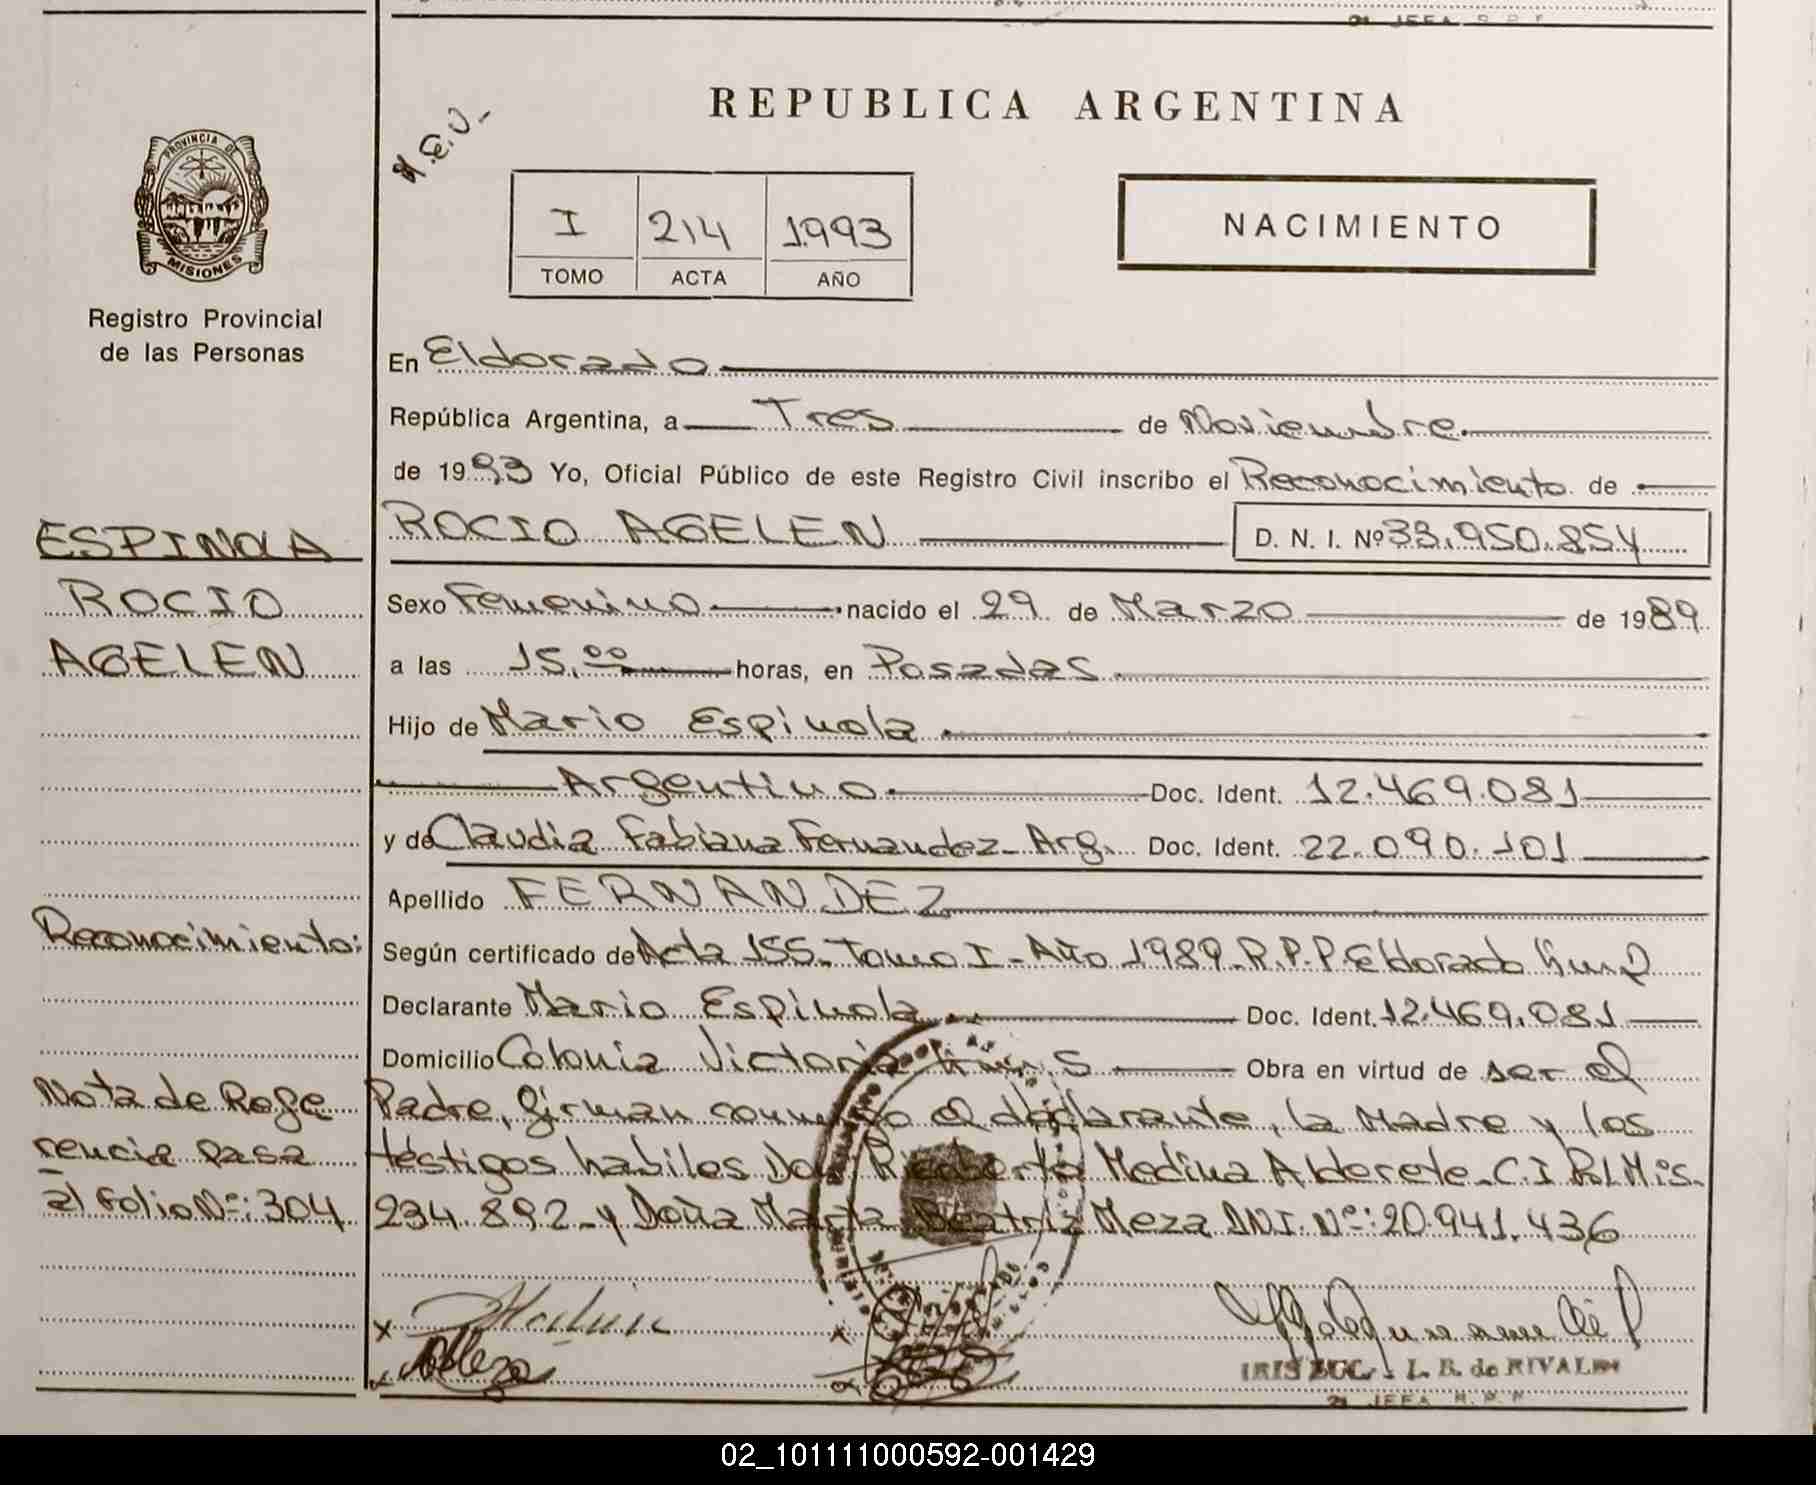 REPUBLICA ARGENTINA
PROVINCIA DE
MISIONES
Registro Provincial
de las Personas
I 214 1993
TOMO ACTA AÑO
NACIMIENTO
En Eldorado
República Argentina, a Tres de Noviembre
de 1993 Yo, Oficial Público de este Registro Civil inscribo el Reconocimiento de
ESPINOLA
ROCIO AGELEN D. N. I. Nº 33.950.854
ROCIO
AGELEN
Sexo Femenino nacido el 29 de Marzo de 1989
a las 15,00 horas, en Posadas
Hijo de Mario Espinola
Argentino Doc. Ident. 12.469.081
y de Claudia Fabiana Fernandez - Arg. Doc. Ident. 22.090.101
Apellido FERNANDEZ
Reconocimiento:
Según certificado de Acta 155 - Tomo I - Año 1989 - R.P.P. Eldorado
Declarante Mario Espinola Doc. Ident. 12.469.081
Domicilio Colonia Victoria Obra en virtud de ser el
Nota de Refe
rencia pasa
al folio Nº: 304
Padre, firman el declarante, la Madre y los
testigos habiles Don Rigoberto Medina Alderete - C.I. Pol. Mis.
234.892 - y Doña Beatriz Meza DNI. Nº: 20.941.436
IRIS L. B. de RIVALDI
JEFA R. P. P.
02_101111000592-001429